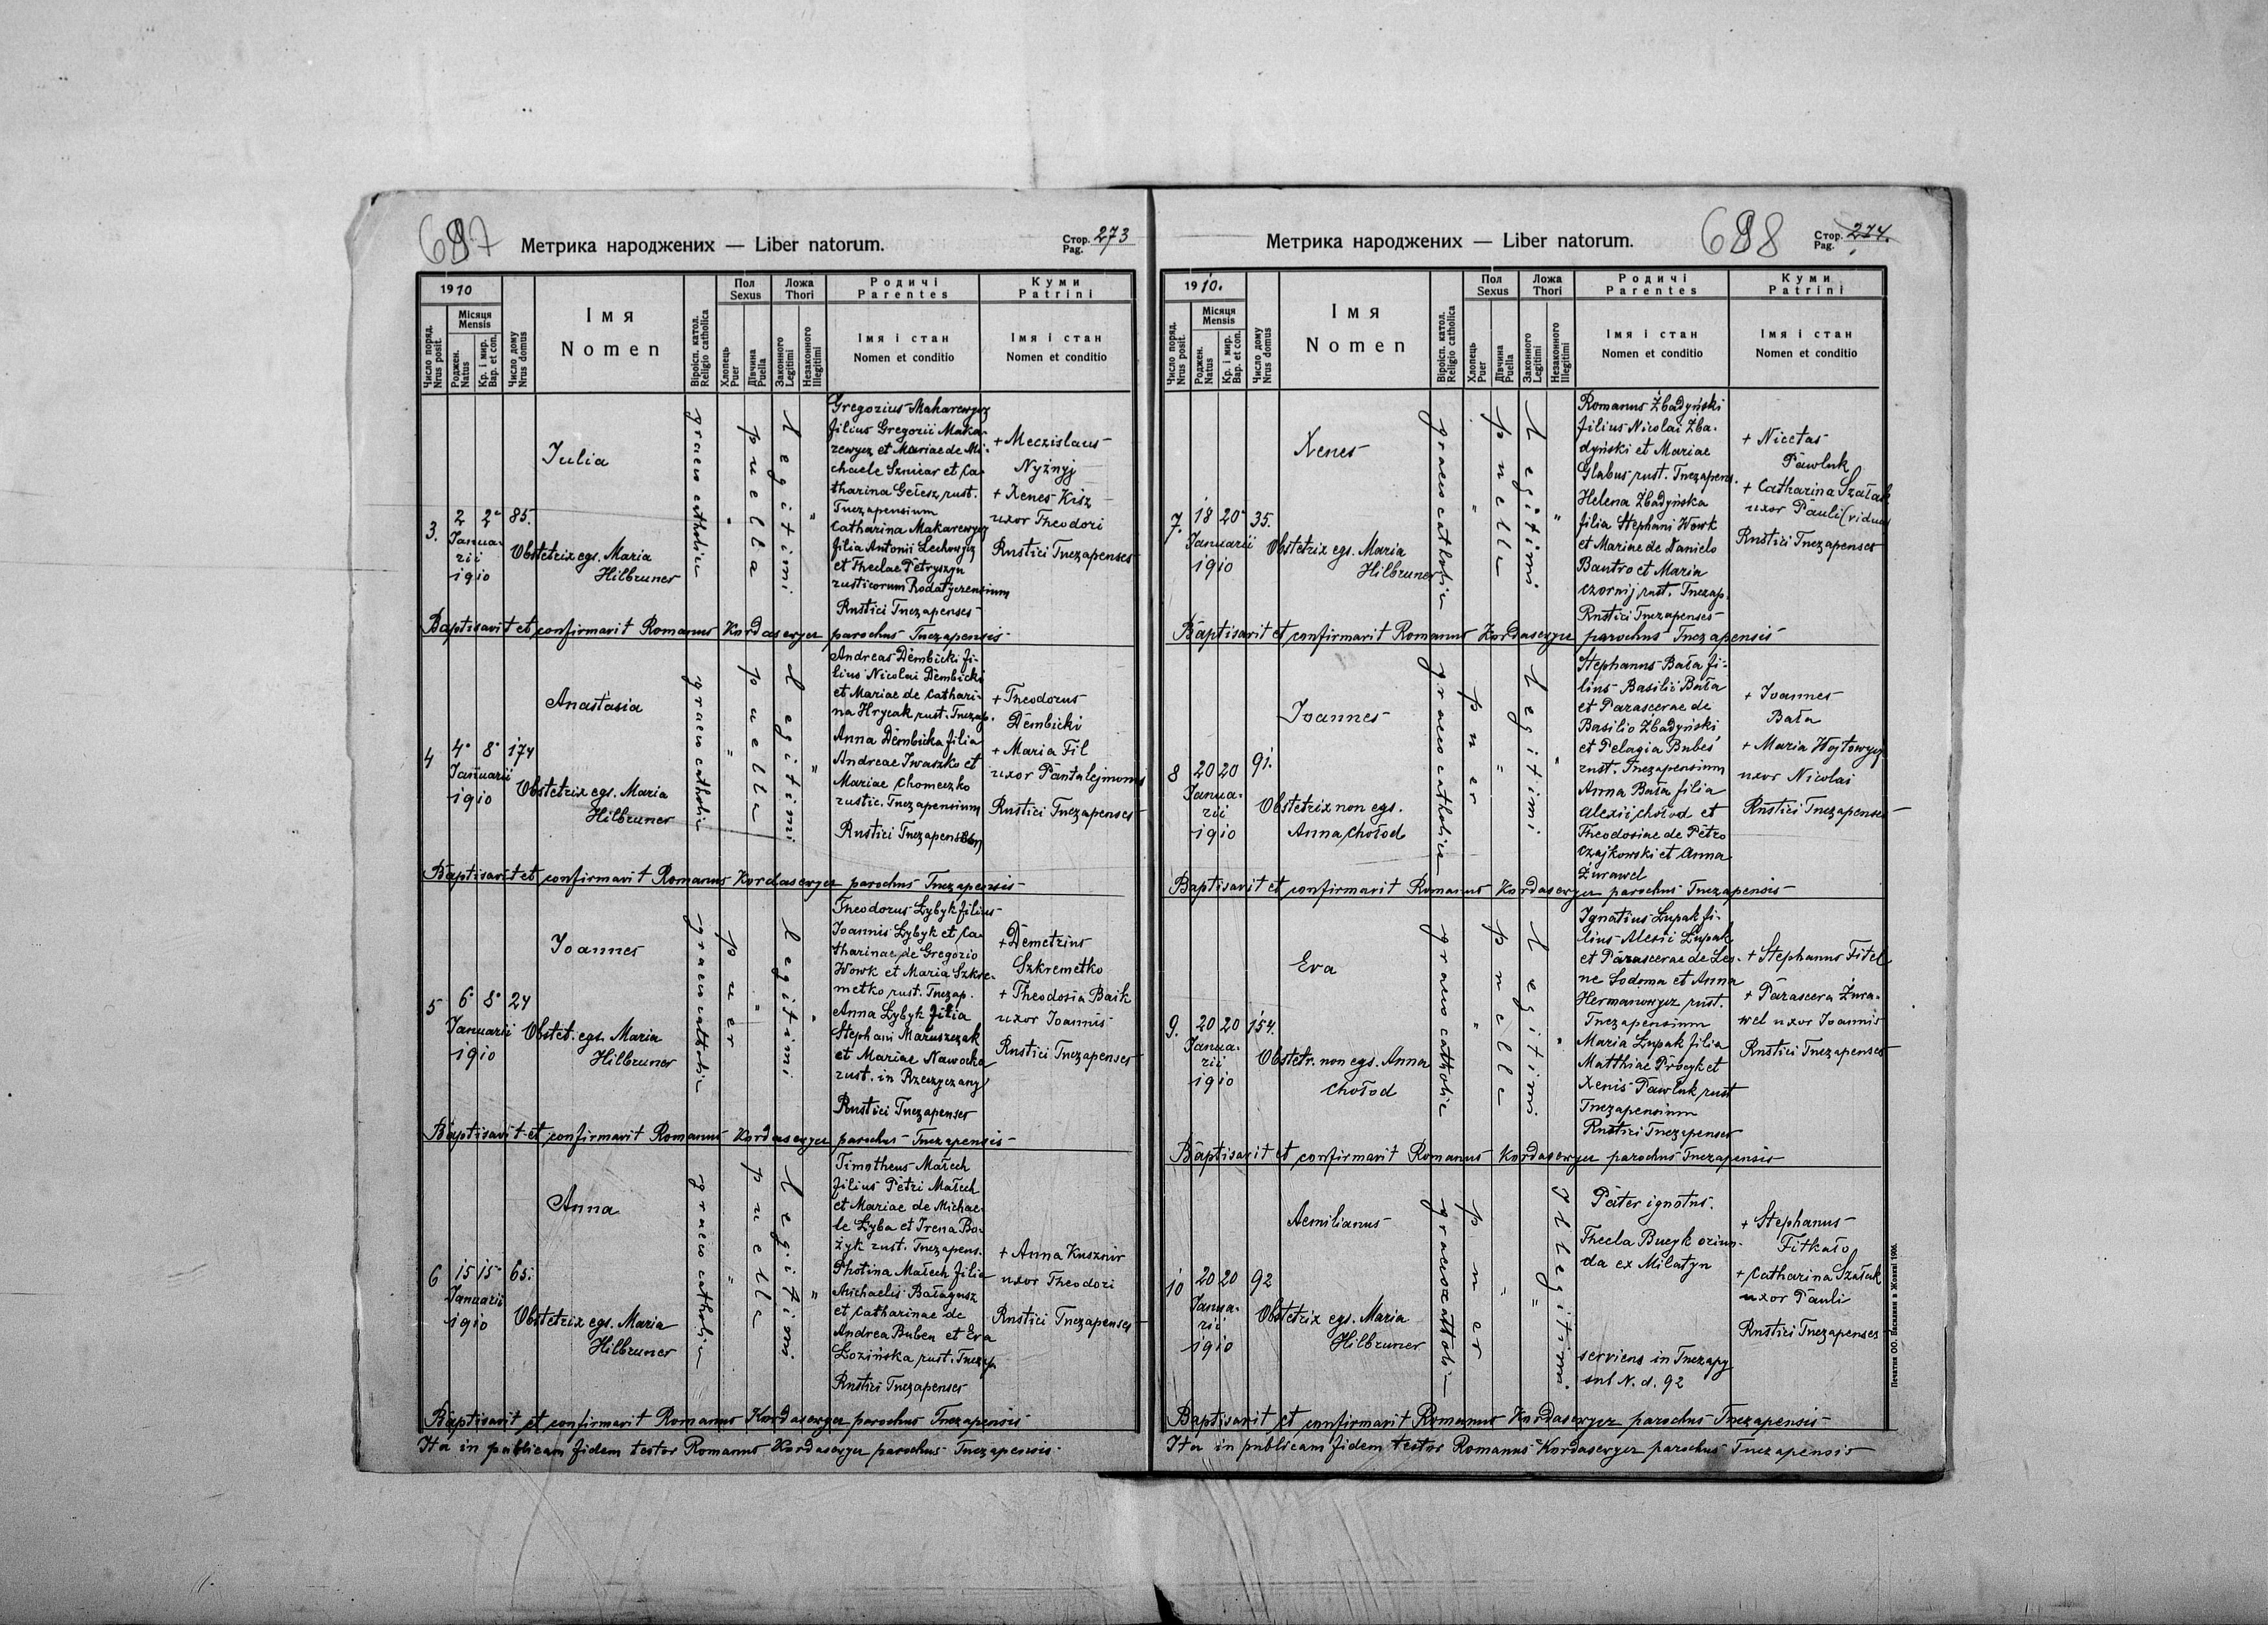 687
Метрика народжених — Liber natorum.
Стор. Pag. 273
1910
Число поряд. Nrus posit.
Місяця Mensis
Роджен. Natus
Кр. і мир. Bap. et con.
Число дому Nrus domus
Імя
Nomen
Віроісп. катол. Religio catholica
Пол Sexus
Хлопець Puer
Дівчина Puella
Ложа Thori
Законного Legitimi
Незаконного Illegitimi
Родичі
Parentes
Імя і стан
Nomen et conditio
Куми
Patrini
Імя і стан
Nomen et conditio
3.
2 2
Januarii
1910
85.
Iulia
Obstetrix egs. Maria
Hilbruner
graeco catholica
puella
"
Legitimi
"
Gregorius Makarewycz
filius Gregorii Maka-
rewycz et Mariae de Mi-
chaele Sznicar et Ca-
tharina Gelesz rust.
Tuczapensium
Catharina Makarewycz
filia Antonii Lechowycz
et Theclae Petryszyn
rusticorum Rodatyczensium
Rustici Tuczapenses
+ Meczislaus
Nyżnyj
+ Xenes Kisz
uxor Theodori
Rustici Tuczapenses
Baptisavit et confirmavit Romanus Kordasewycz parochus Tuczapensis
4
4 8
Januarii
1910
174
Anastasia
Obstetrix egs. Maria
Hilbruner
graeco catholic
puella
"
Legitimi
"
Andreas Dembicki fi-
lius Nicolai Dembicki
et Mariae de Cathari-
na Hrycak rust. Tuczap.
Anna Dembicka filia
Andreae Iwaszko et
Mariae Chomeczko
rustic. Tuczapensium
Rustici Tuczapenses
+ Theodorus
Dembicki
+ Maria Fil
uxor Pantalejmonis
Rustici Tuczapenses
Baptisavit et confirmavit Romanus Kordasewycz parochus Tuczapensis
5
6 8
Januarii
1910
24
Joannes
Obstet. egs. Maria
Hilbruner
graeco catholic
puer
"
Legitimi
"
Theodorus Łybyk filius
Joannis Łybyk et Ca-
tharinae de Gregorio
Wowk et Maria Szkre-
metko rust. Tuczap.
Anna Łybyk filia
Stephani Maruszczak
et Mariae Nawocka
rust. in Rzeczyczany
Rustici Tuczapenses
+ Demetrius
Szkremetko
+ Theodosia Baik
uxor Joannis
Rustici Tuczapenses
Baptisavit et confirmavit Romanus Kordasewycz parochus Tuczapensis
6
15 15
Januarii
1910
65.
Anna
Obstetrix egs. Maria
Hilbruner
graeco catholic
puella
"
Legitimi
"
Timotheus Małech
filius Petri Małech
et Mariae de Michae-
le Łyba et Irena Bo-
żyk rust. Tuczapens.
Photina Małech filia
Michaelis Bałagusz
et Catharinae de
Andrea Buben et Eva
Łozińska rust. Tuczap.
Rustici Tuczapenses
+ Anna Kusznir
uxor Theodori
Rustici Tuczapenses
Baptisavit et confirmavit Romanus Kordasewycz parochus Tuczapensis
Ita in publicam fidem testor Romanus Kordasewycz parochus Tuczapensis
688
Метрика народжених — Liber natorum.
Стор. Pag. 274.
1910.
Число поряд. Nrus posit.
Місяця Mensis
Роджен. Natus
Кр. і мир. Bap. et con.
Число дому Nrus domus
Імя
Nomen
Віроісп. катол. Religio catholica
Пол Sexus
Хлопець Puer
Дівчина Puella
Ложа Thori
Законного Legitimi
Незаконного Illegitimi
Родичі
Parentes
Імя і стан
Nomen et conditio
Куми
Patrini
Імя і стан
Nomen et conditio
7.
18 20
Januarii
1910
35.
Xenes
Obstetrix egs. Maria
Hilbruner
graeco catholic
puella
"
Legitimi
"
Romanus Żbadyński
filius Nicolai Żba-
dyński et Mariae
Glabus rust. Tuczapens.
Helena Żbadyńska
filia Stephani Wowk
et Mariae de Danielo
Bantro et Maria
Czornij rust. Tuczap.
Rustici Tuczapenses
+ Nicetas
Pawluk
+ Catharina Szałak
uxor Pauli (vidua)
Rustici Tuczapenses
Baptisavit et confirmavit Romanus Kordasewycz parochus Tuczapensis
8
20 20
Januarii
1910
91.
Joannes
Obstetrix non egs.
Anna Chołod
graeco catholica
puer
"
Legitimi
"
Stephanus Bała fi-
lius Basilii Bała
et Parascevae de
Basilio Żbadyński
et Pelagia Bubeś
rust. Tuczapensium
Anna Bała filia
Alexii Chołod et
Theodosiae de Petro
Czajkowski et Anna
Żurawel
+ Joannes
Bała
+ Maria Wojtowycz
uxor Nicolai
Rustici Tuczapenses
Baptisavit et confirmavit Romanus Kordasewycz parochus Tuczapensis
9.
20 20
Januarii
1910
154.
Eva
Obstetr. non egs. Anna
Chołod
graeco catholic
puella
"
Legitimi
"
Ignatius Łupak fi-
lius Alexii Łupak
et Parascevae de Les-
ne Sodoma et Anna
Hermanowycz rust.
Tuczapensium
Maria Łupak filia
Matthiae Procyk et
Xenis Pawluk rust
Tuczapensium
Rustici Tuczapenses
+ Stephanus Fitel
+ Parasceva Żura-
wel uxor Joannis
Rustici Tuczapenses
Baptisavit et confirmavit Romanus Kordasewycz parochus Tuczapensis
10
20 20
Januarii
1910
92
Aemilianus
Obstetrix egs. Maria
Hilbruner
graeco catholic
puer
"
"
Illegitimi
Pater ignotus.
Thecla Bucyk oriun-
da ex Milatyn
serviens in Tuczapy
sub N. d. 92
+ Stephanus
Fitkało
+ Catharina Szałak
uxor Pauli
Rustici Tuczapenses
Baptisavit et confirmavit Romanus Kordasewycz parochus Tuczapensis
Ita in publicam fidem testor Romanus Kordasewycz parochus Tuczapensis
Печатня ОО. Василиян в Жовкві 1906.